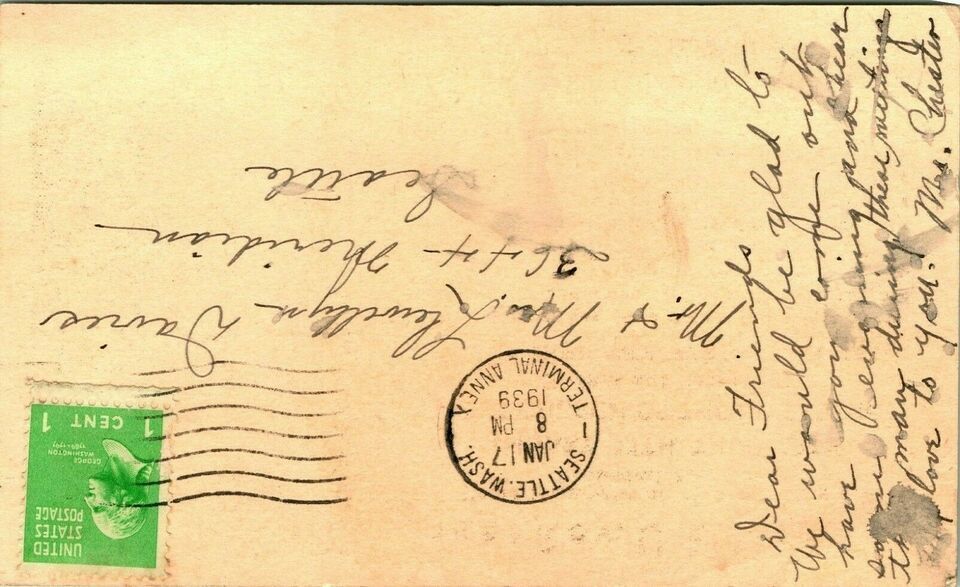 Dear Friends
We would be glad to
have you come out
some evening and hear
this man during these meetings
love to you. Mrs. Chester
Mr. & Mrs. Llewellyn Davies
3644 Meridian
Seattle
SEATTLE, WASH.
JAN 17
8 PM
1939
TERMINAL ANNEX
UNITED
STATES
POSTAGE
GEORGE
WASHINGTON
1789-1797
1 CENT 1